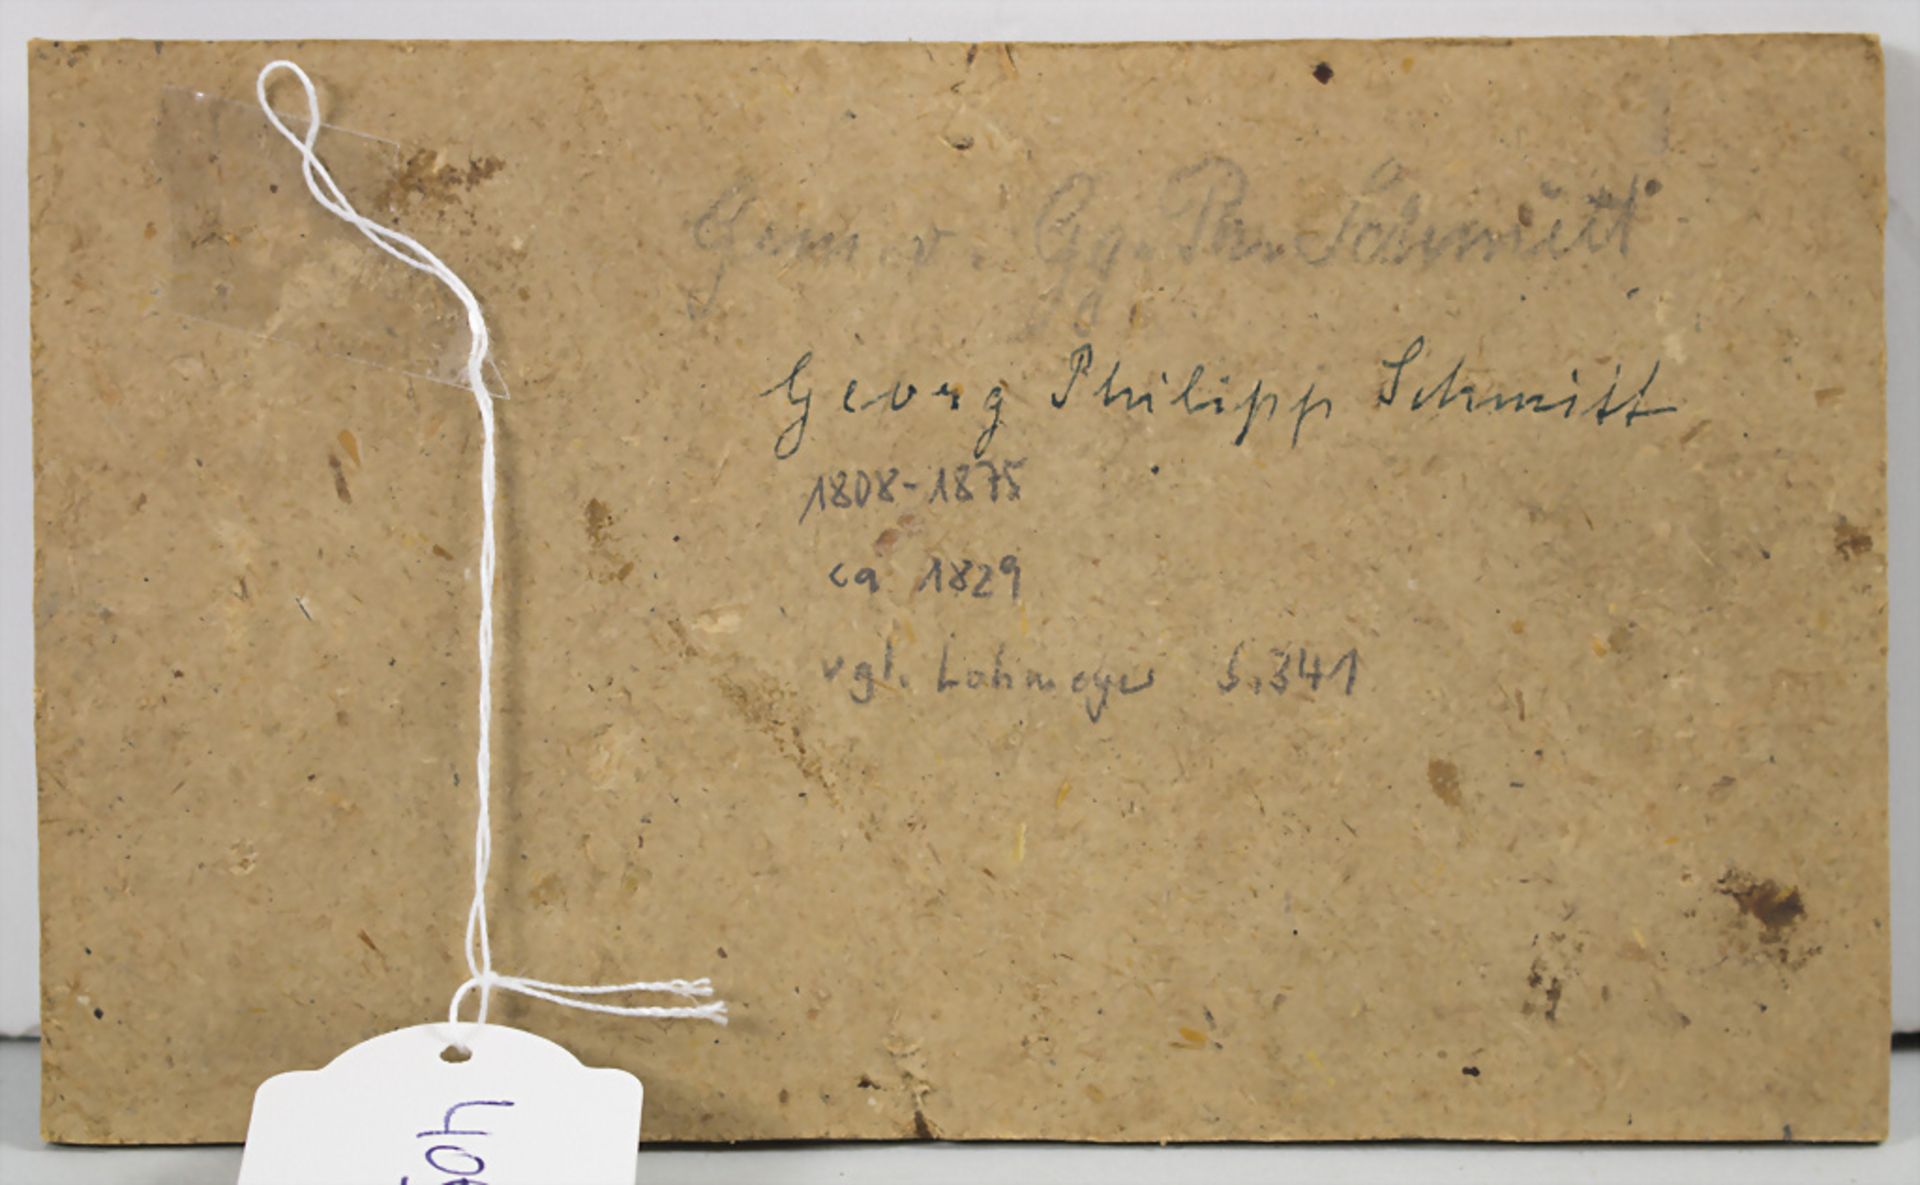 Gem. v. Gg. Ph. Schmitt
Georg Philipp Schmitt
1808-1875
ca 1829
vgl. Lohmeyer S.341